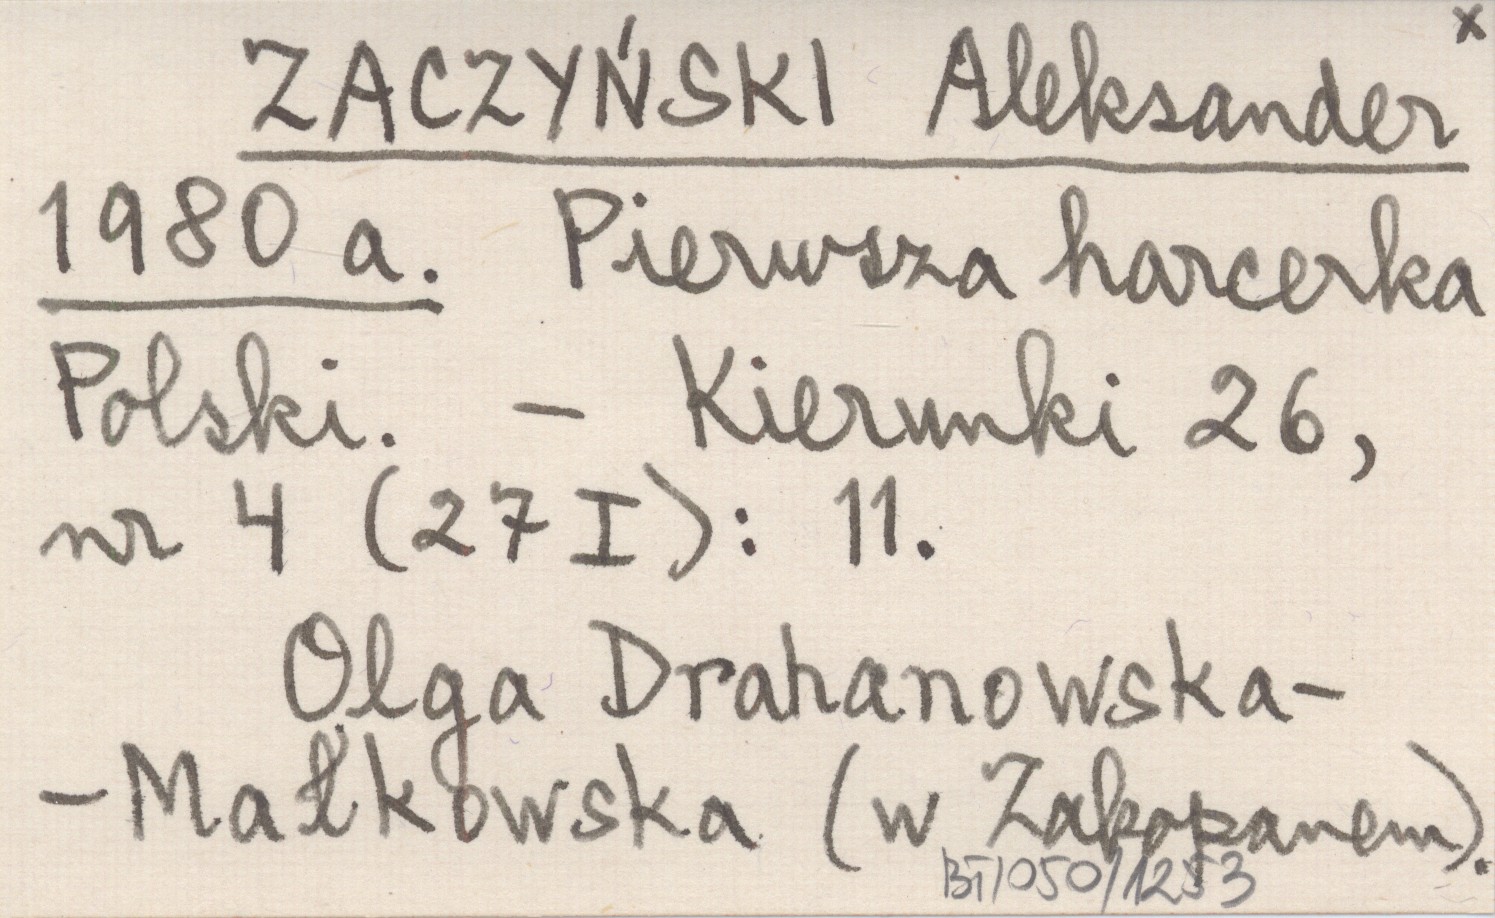 x
ZACZYŃSKI Aleksander
1980 a. Pierwsza harcerka
Polski. – Kierunki 26,
nr 4 (27 I): 11.
Olga Drahanowska-
-Małkowska (w Zakopanem).
BT/050/1253